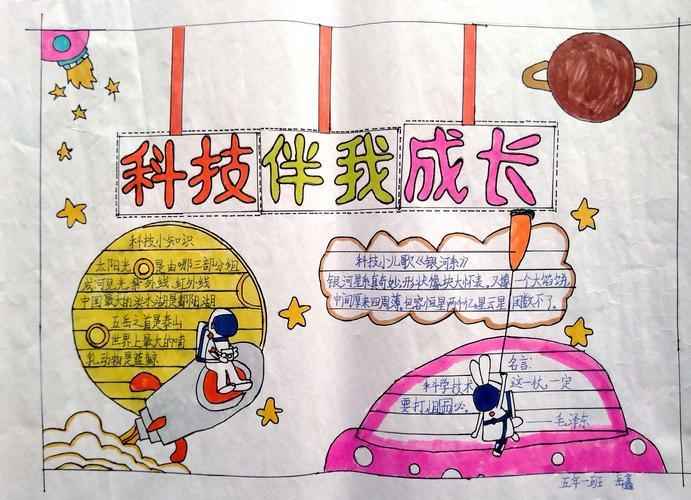 科技伴我成长
科技小知识
太阳光 是由哪三部分组
成可见光 紫外线 红外线
中国最大的淡水湖是鄱阳湖
五岳之首是泰山
世界上最大的哺
乳动物是蓝鲸
科技小儿歌《银河系》
银河星系真奇妙,形状像块大怀表,又像一个大馅饼,
中间厚来四周薄,包容恒星两千亿,星云星团数不了。
名言:
科学技术 这一仗,一定
要打,
——毛泽东
五年一班